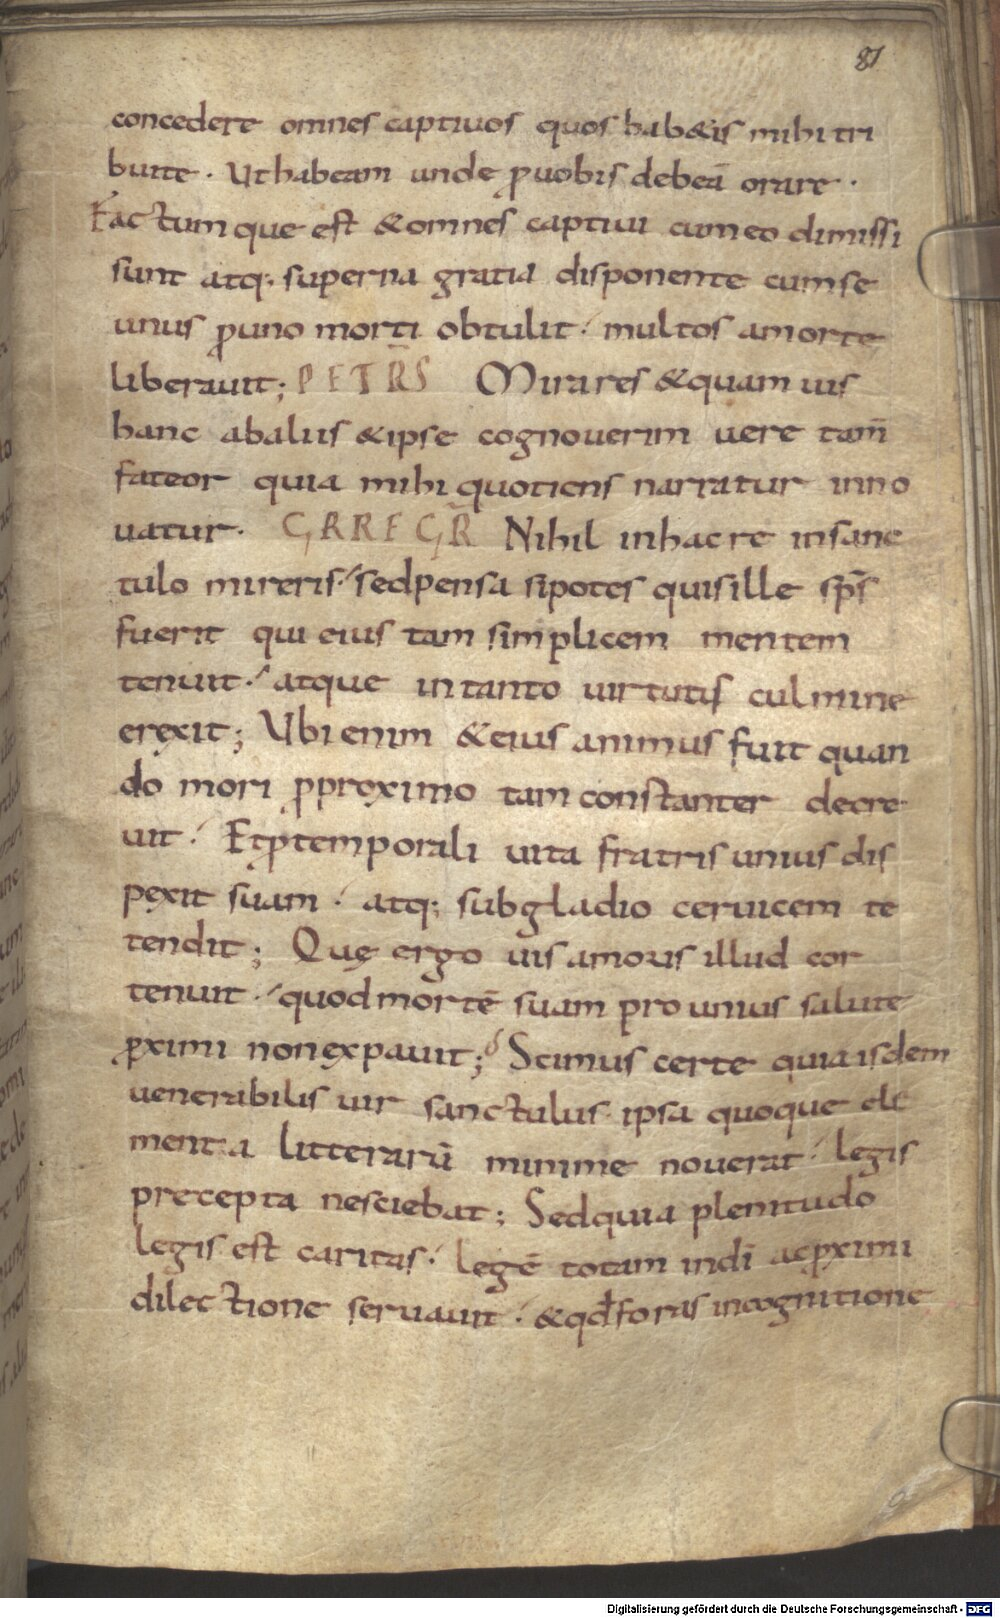 81
concedere omnes captiuos quos hab&is mihi tri
buite . Ut habeam unde ꝓuobis debeā orare .
Factumque est &omnes captiui cum eo dimissi
sunt atq; superna gratia disponente cum se
unus ꝓuno morti obtulit ./ multos amorte
liberauit; PETRS̄ Mirares &quam uis
hanc abaliis &ipse cognouerim uere tam̄
fateor quia mihi quotiens narratur inno
uatur . GRREGR̄ Nihil inhac re insanc
tulo mireris ./ sedpensa sipotes quis ille sp̄s
fuerit qui eius tam simplicem mentem
tenuit ./ atque intanto uirtutis culmine
erexit; Ubi enim &eius animus fuit quan
do mori ꝓproximo tam constanter decre
uit ./ Etꝓtemporali uita fratris unius dis
pexit suam ./ atq; subgladio ceruicem te
tendit; Quę ergo uis amoris illud cor
tenuit ./ quod mortē suam pro unius salute
ꝓximi non expauit; Scimus certe quia isdem
uenerabilis uir sanctulus ipsa quoque ele
menta litterarū minime nouerat ./ legis
precepta nesciebat; Sedquia plenitudo
legis est caritas ./ legē totam indī acꝓximi
dilectione seruauit ./ &qđforas incognitione
Digitalisierung gefördert durch die Deutsche Forschungsgemeinschaft - DFG